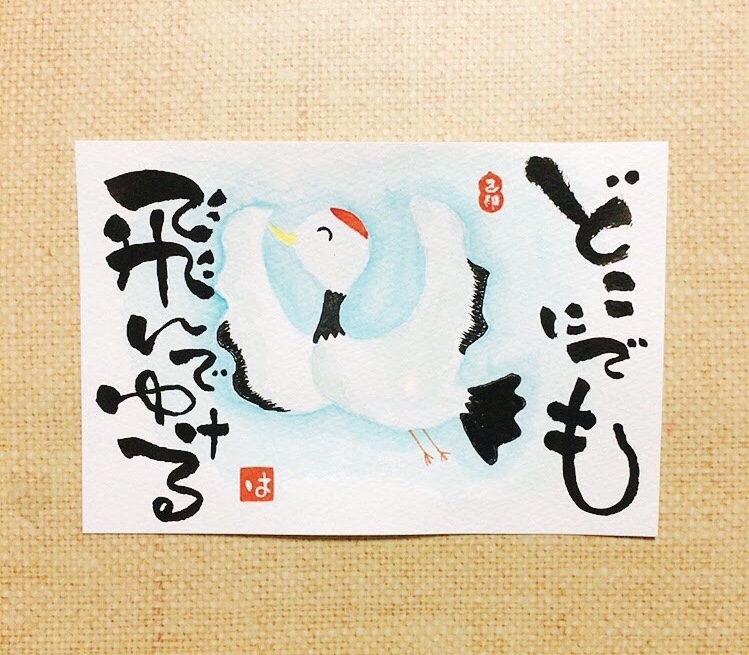 どこにでも
飛んでゆける
は